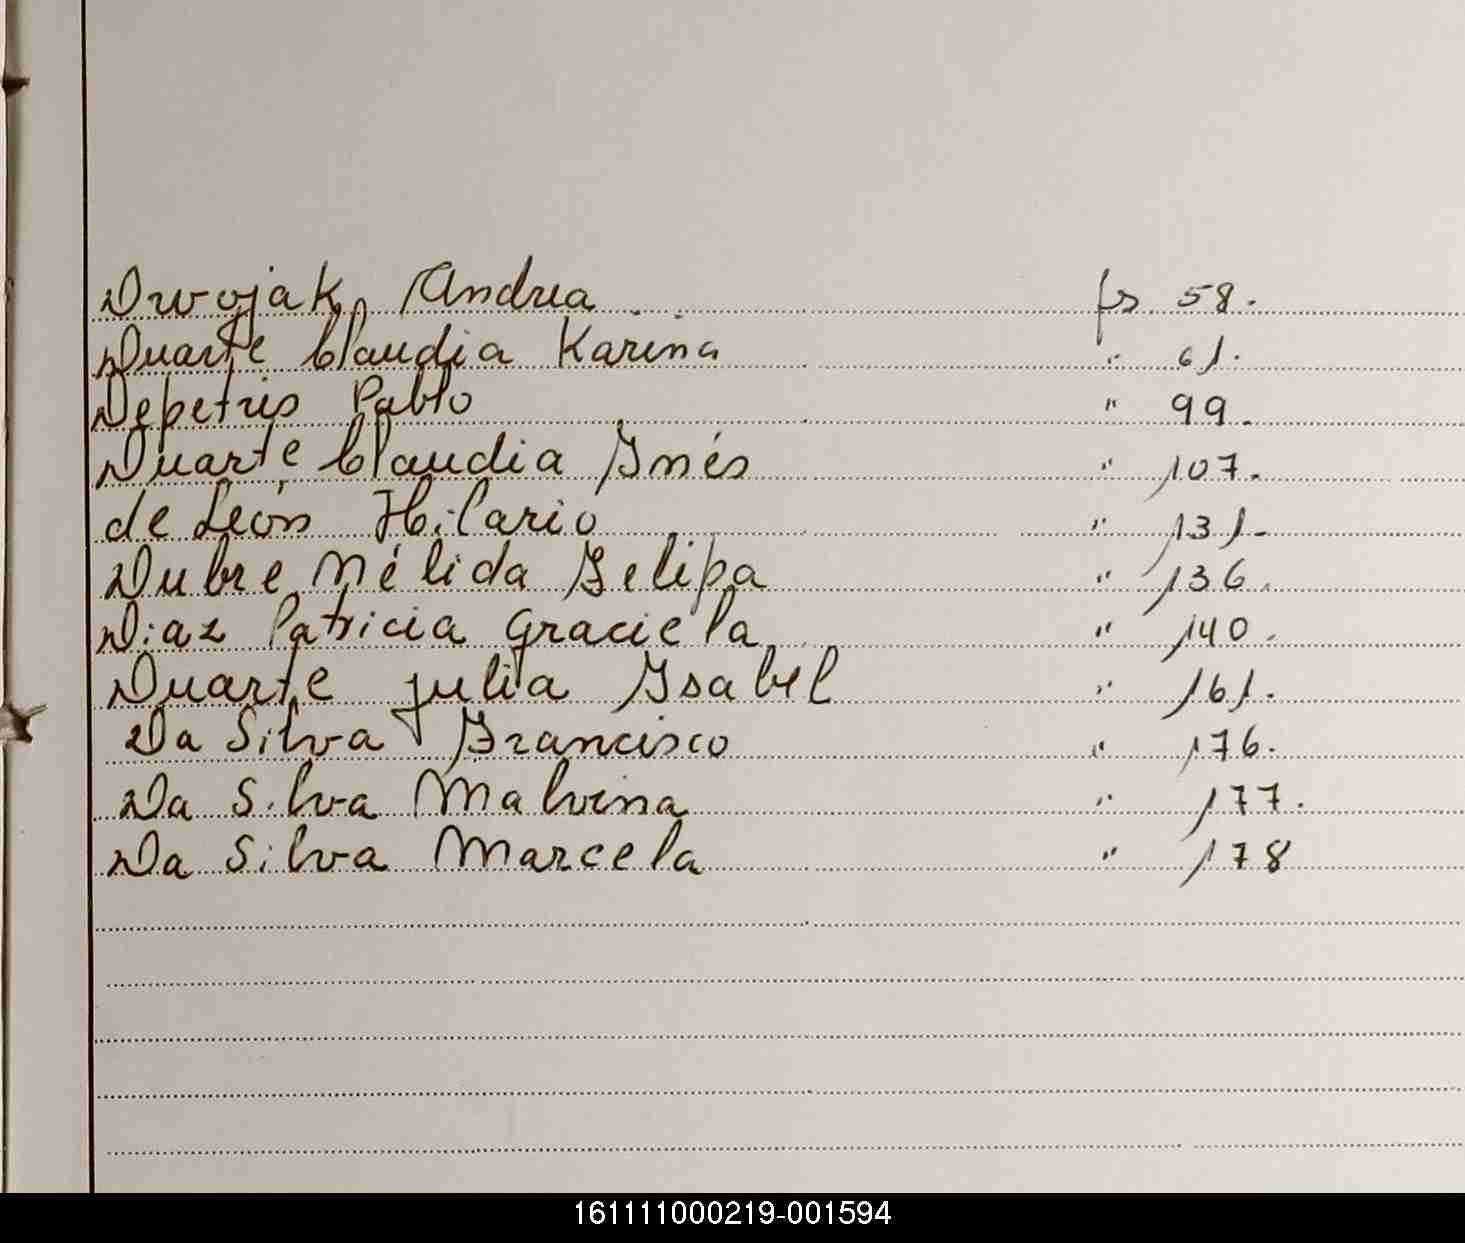 Dwojak, Andrea fs 58.
Duarte Claudia Karina " 61.
Depetris Pablo " 99.
Duarte Claudia Inés " 107.
de León Hilario " 131.
Dubre Nélida Felipa " 136.
Diaz Patricia Graciela " 140.
Duarte Julia Isabel " 161.
Da Silva Francisco " 176.
Da Silva Malvina " 177.
Da Silva Marcela " 178
161111000219-001594